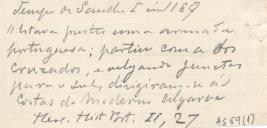 Tempo de Sancho I em 1189
"Estava prestes uma armada
portuguesa; partiu com a dos
cruzados, e velejando juntas
para o sul, dirigiram-se ás
Costas do moderno Algarve
Herc. Hist Port. II, 27
AS 69(1)